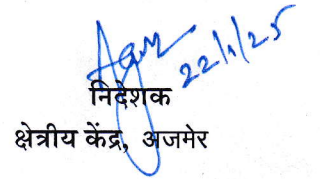 22/1/25
निदेशक
क्षेत्रीय केंद्र, अजमेर